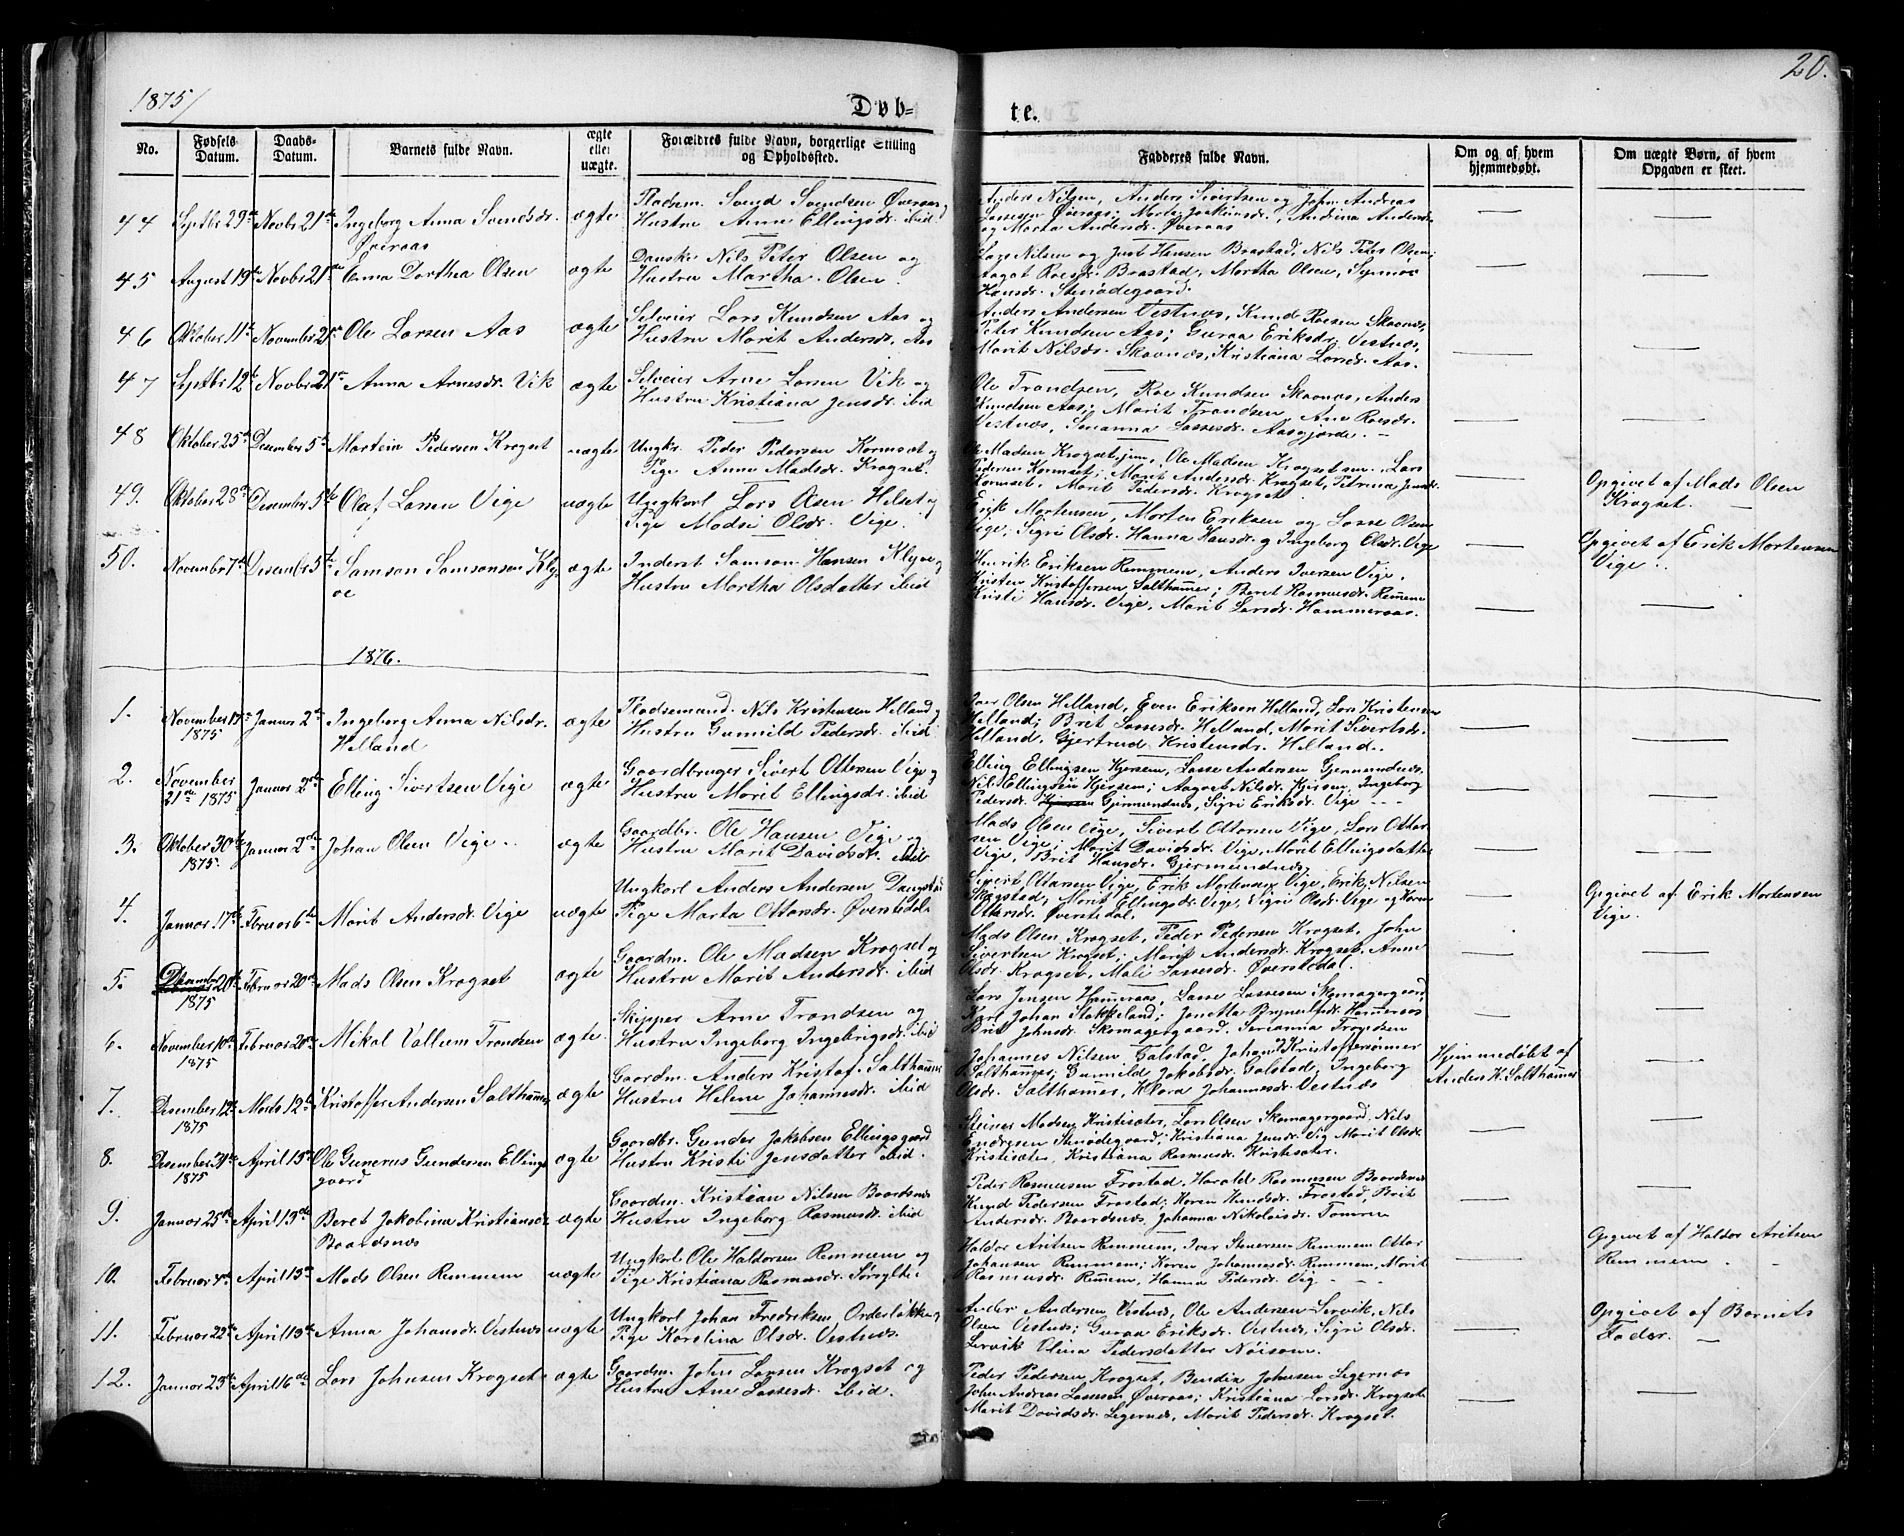 1875/
20.
Døb-
te.
No.
Fødsels Datum.
Daabs-Datum.
Barnets fulde Navn.
ægte eller uægte.
Forældres fulde Navn, borgerlige Stilling og Opholdssted.
Fadderes fulde Navn.
Om og af hvem hjemmedøbt.
Om uægte Børn, af hvem Opgaven er skeet.
44 Septbr 29de Novbr 21de Ingeborg Anna Svendsdr. Øveraas ægte
Pladsm. Svend Svendsen Øveraas
Hustru Anne Ellingsdr. ibid
Anders Nilsen, Anders Sivertsen og John Andreas
Lassesen Øveraas; Marta Joakimsdr., Andina Andersdr.
og Marta Andersdr. Øveraas
45 August 19de Novbr 21de Anna Dorthea Olsen ægte
Danske Nils Peter Olsen og
Hustru Martha Olsen.
Lars Nilsen og Just Hansen Brastad, Nils Peter Olsen;
Aagot Roesdr. Brastad, Martha Olsen, Synnøe
Hansdr. Stenødegaard.
46 Oktober 11te November 21de Ole Larsen Aas ægte
Selveier Lars Knudsen Aas og
Hustru Marit Andersdr. Aas
Anders Andersen Vestnæs, Knud Roesen Skaanæs,
Peter Knudsen Aas; Guraa Eriksdr. Vestnæs,
Marit Nilsdr. Skaanæs, Kristiana Larsdr. Aas.
47 Septbr 12te Novbr 21de Anna Arnesdr. Vik ægte
Selveier Arne Larsen Vik og
Hustru Kristiana Jensdr. ibid
Ole Trondsen, Roe Knudsen Skaanæs, Anders
Knudsen Aas; Marit Trondsen, Ane Roesdr.
Vestnæs, Susanna Lassesdr. Aasgjærde.
48 Oktober 25de Desember 5te Martein Pedersen Krogset uægte
Ungkr. Peder Pedersen Kormset og
Pige Anne Madsdr. Krogset.
Ole Madsen Krogset jun., Ole Madsen Krogset sen., Lars
Pedersen Kormset; Marit Andersdr. Krogset, Petrina Jensdr.
Kormset, Marit Pedersdr. Krogset
Opgivet af Mads Olsen
Krogset.
49. Oktober 28de Desember 5te Olaf Larsen Vige uægte
Ungkarl Lars Olsen Helset og
Pige Madsi Olsdr. Vige.
Erik Mortensen, Morten Eriksen og Lasse Olsen
Vige, Sigri Olsdr. Hanna Hansdr. og Ingeborg Olsdr. Vige
Opgivet af Erik Mortensen
Vige.
50. Novembr 7de Desembr 5te Samson Samsonsen Kly-
oe ægte
Inderst Samson Hansen Klyve og
Hustru Martha Olsdatter ibid
Henrik Eriksen Remmem, Anders Iversen Vige.
Kristen Kristoffersen Salthammer; Beret Rasmusdr. Remmem
Kristi Hansdr. Vige, Marit Larsdr. Hammeraas.
1876.
1. November 14de 1875 Januar 2den Ingeborg Anna Nilsdr.
Helland ægte
Pladsemand. Nils Kristensen Helland og
Hustru Gunnild Pedersdr. ibid
Olsen Helland, Even Eriksen Helland, Lars Kristensen
Helland; Bret Lassesdr. Helland, Marit Sivertsdr.
Helland, Gjertrud Kristensdr. Helland.
2. November 21de 1875 Januar 2den Elling Sivertsen Vige ægte
Gaardbruger Sivert Ottersen Vige og
Hustru Marit Ellingsdr. ibid
Elling Ellingsen Hjersem, Lasse Andersen Gjermundnæs
Nils Ellingsen Hjersem; Aagot Nilsdr. Hjersem, Ingeborg
Pedersdr. Gjermundnæs, Sigri Eriksdr. Vige
3. Oktober 30te 1875 Januar 2den Johan Olsen Vige ægte
Gaardbr. Ole Hansen Vige og
Hustru Marit Davidsdr. ibid
Mads Olsen Vige, Sivert Ottersen Vige, Lars Otter
sen Vige; Marit Davidsdr. Vige, Marit Ellingsdatter
Vige, Brit Hansdr. Gjermundnæs
4. Januar 17de Februar 6te Marit Andersdr. Vige uægte
Ungkarl Anders Andersen Daugstad
Pige Marta Ottersdr. Øverstedal
Sivert Ottersen Vige, Erik Mortensen Vige, Erik Nilsen
Skogstad; Marit Ellingsdr. Vige, Sigri Olsdr. Vige og Karen
Ottersdr. Øverstedal.
Opgivet af Erik Mortensen
Vige.
5. Desember 20de 1875 Februar 20de Mads Olsen Krogset ægte
Gaardm. Ole Madsen Krogset og
Hustru Marit Andersdr. ibid
Mads Olsen Krogset, Peder Pedersen Krogset, John
Sivertsen Krogset; Marit Andersdr. Krogset, Anne
Olsdr. Krogset, Mali Lassesdr. Øverstedal.
6. November 10de 1875 Februar 20de Mikal Vallum Trondsen ægte.
Skipper Arne Trondsen og
Hustru Ingeborg Ingebrigsdr. ibid
Lars Jensen Hammeraas, Lasse Lassesen Skomagergaard,
Karl Johan Stokkeland; Janetta Brynildsdr. Hammeraas
Brit Johnsdr. Skomagergaard. Serianna Trondsen
7. Desember 12te 1875 Mads 12te Kristoffer Andersen Salthammer ægte
Gaardm. Anders Kristof. Salthammer
Hustru Helene Johannesdr. ibid
Johannes Nilsen Galstad, Johan Kristoffersønner
Salthammer; Gunnild Jakobsdr. Galstad, Ingeborg
Olsdr. Salthammer, Klara Johannesdr. Vestnæs
Hjemmedøbt af
Anders K. Salthammer
8. Desember 31te 1875 April 13de Ole Gunerus Gundersen Ellings
gaard ægte
Gaardbr. Gunder Jakobsen Ellingsgaard
Hustru Kristi Jensdatter ibid.
Steiner Madsen Kristisæter, Lars Olsen Skomagergaard, Nils
Endresen Stenødegaard; Kristiana Jensdr. Vig Marit Olsdr.
Kristisæter, Kristiana Rasmusdr. Kristisæter.
9. Januar 25de April 13de Beret Jakobina Kristiansdr.
Baardsnæs ægte
Gaardm. Kristian Nilsen Baardsnæs
Hustru Ingeborg Rasmusdr. ibid
Peder Rasmussen Frostad, Harald Rasmussen Baardsnæs
Knud Pedersen Frostad; Karen Knudsdr. Frostad, Brit
Andersdr. Baardsnæs, Johanna Nikolaisdr. Tomren
10. Februar 4de April 13de Mads Olsen Remmem uægte
Ungkarl Ole Haldorsen Remmem og
Pige Kristiana Rasmusdr. Sørsylte
Haldor Aritsen Remmem, Iver Stenersen Remmem Otter
Johansen Remmem; Karen Johannesdr. Remmem, Marit
Rasmusdr. Remmem, Hanna Pedersdr. Vig
Opgivet af Haldor Aritsen
Remmem
11. Februar 22de April 13de Anna Johansdr. Vestnæs uægte
Ungkarl Johan Fredriksen, Orderløkken og
Pige Karolina Olsdr. Vestnæs.
Anders Andersen Vestnæs, Ole Andersen Lervik, Nils
Olsen Vestnæs; Guraa Eriksdr. Vestnæs, Sigri Olsdr.
Lervik Olina Pedersdatter Nøisom.
Opgivet af Barnets
Fader.
12. Januar 23de April 16de Lars Johnsen Krogset ægte
Gaardm. John Larsen Krogset og
Hustru Ane Lassesdr. ibid.
Peder Pedersen Krogset, Bendik Johnsen Legernæs
John Andreas Lassesen Øveraas; Kristiana Larsdr. Krogset
Marit Davidsdr. Legernæs, Marit Pedersdr. Krogset.